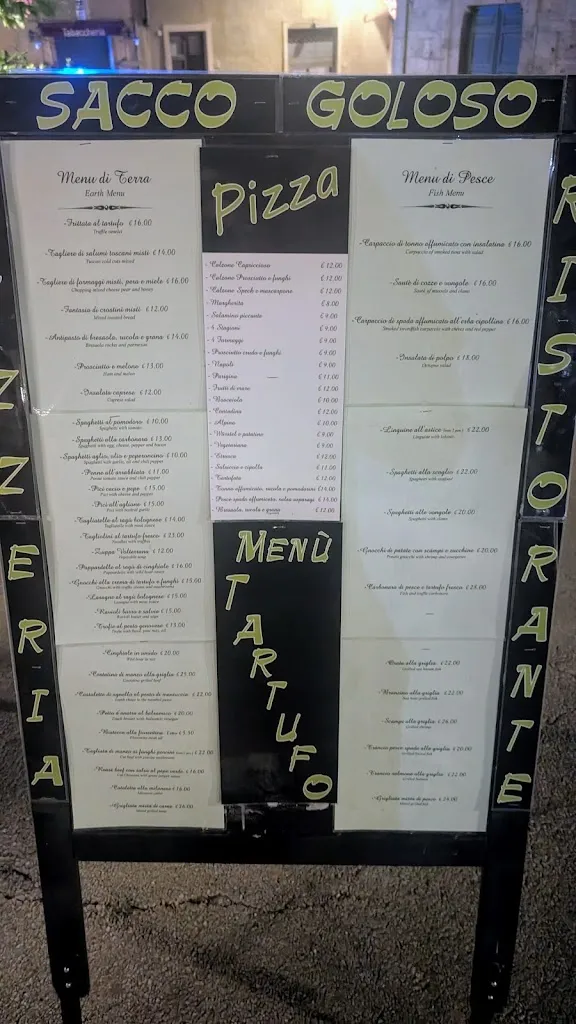 Tabaccheria
SACCO GOLOSO
Menu di Terra
Earth Menu
-Frittata al tartufo € 16.00
Truffle omelet
-Tagliere di salumi toscani misti € 14.00
Tuscan cold cuts mixed
-Tagliere di formaggi misti, pera e miele € 16.00
Chopping mixed cheese pear and honey
-Fantasia di crostini misti € 12.00
Mixed toasted bread
-Antipasto di bresaola, rucola e grana € 14.00
Bresaola rocket and parmesan
-Prosciutto e melone € 13.00
Ham and melon
-Insalata caprese € 12.00
Caprese salad
-Spaghetti al pomodoro € 10.00
Spaghetti with tomato
-Spaghetti alla carbonara € 13.00
Spaghetti with egg, cheese, pepper and bacon
-Spaghetti aglio, olio e peperoncino € 10.00
Spaghetti with garlic, oil and chili pepper
-Penne all'arrabbiata € 11.00
-Pici cacio e pepe € 15.00
Pici with cheese and pepper
-Pici all'aglione € 15.00
-Tagliatelle al ragù bolognese € 14.00
Tagliatelle with meat sauce
-Tagliolini al tartufo fresco € 23.00
Noodles with truffles
-Zuppa Valtersona € 12.00
Vegetable soup
-Pappardelle al ragù di cinghiale € 16.00
-Gnocchi alla crema di tartufo e funghi € 18.00
-Lasagne al ragù bolognese € 15.00
-Ravioli burro e salvia € 15.00
-Trofie al pesto genovese € 13.00
-Cinghiale in umido € 20.00
-Costatine di manzo alla griglia € 25.00
-Costolette di agnello al pesto di menuccia € 22.00
-Petto d'anatra al balsamico € 20.00
-Bistecca alla fiorentina € 5.50
-Tagliata di manzo ai funghi porcini € 22.00
-Roast beef con salsa al pepe verde € 16.00
-Cotoletta alla milanese € 16.00
-Grigliata mista di carne € 26.00
Pizza
- Calzone Capriccioso € 12.00
- Calzone Prosciutto e funghi € 12.00
- Calzone Speck e mascarpone € 12.00
- Margherita € 8.00
- Salamino piccante € 9.00
- 4 Stagioni € 9.00
- 4 Formaggi € 9.00
- Prosciutto crudo e funghi € 9.00
- Napoli € 9.00
- Parigina € 11.00
- Frutti di mare € 12.00
- Boscaiola € 10.00
- Contadina € 12.00
- Alpina € 10.00
- Würstel e patatine € 9.00
- Vegetariana € 9.00
- Etrusca € 12.00
- Salsiccia e cipolla € 11.00
- Tartufata € 12.00
- Tonno affumicato, rucola e pomodorini € 14.00
- Pesce spada affumicato, salsa asparagi € 14.00
- Bresaola, rucola e grana € 12.00
MENÙ TARTUFO
Menu di Pesce
Fish Menu
-Carpaccio di tonno affumicato con insalatina € 16.00
Carpaccio of smoked tuna with salad
-Sautè di cozze e vongole € 16.00
Sautè of mussels and clams
-Carpaccio di spada affumicato all'erba cipollina € 16.00
Smoked swordfish carpaccio with chives and red pepper
-Insalata di polpo € 18.00
Octopus salad
-Linguine all'astice € 22.00
Linguine with lobster
-Spaghetti allo scoglio € 22.00
Spaghetti with seafood
-Spaghetti alle vongole € 20.00
Spaghetti with clams
-Gnocchi di patate con scampi e zucchine € 20.00
Potato gnocchi with shrimp and courgettes
-Carbonara di pesce e tartufo fresco € 28.00
Fish and truffle carbonara
-Orata alla griglia € 22.00
-Branzino alla griglia € 22.00
-Scampi alla griglia € 26.00
-Trancio pesce spada alla griglia € 20.00
-Trancio salmone alla griglia € 22.00
-Grigliata mista di pesce € 28.00
ZZERIA
RISTORANTE